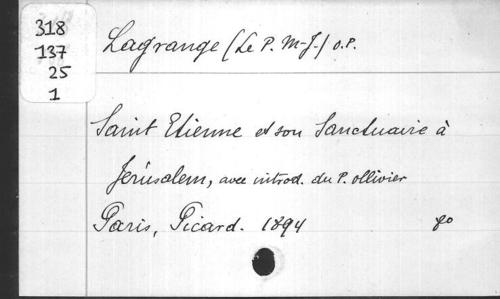 318
137
25
1
Lagrange (Le P. M-J.) O.P.
Saint Etienne et son Sanctuaire à
Jérusalem, avec introd. du P. Ollivier
Paris, Picard. 1894